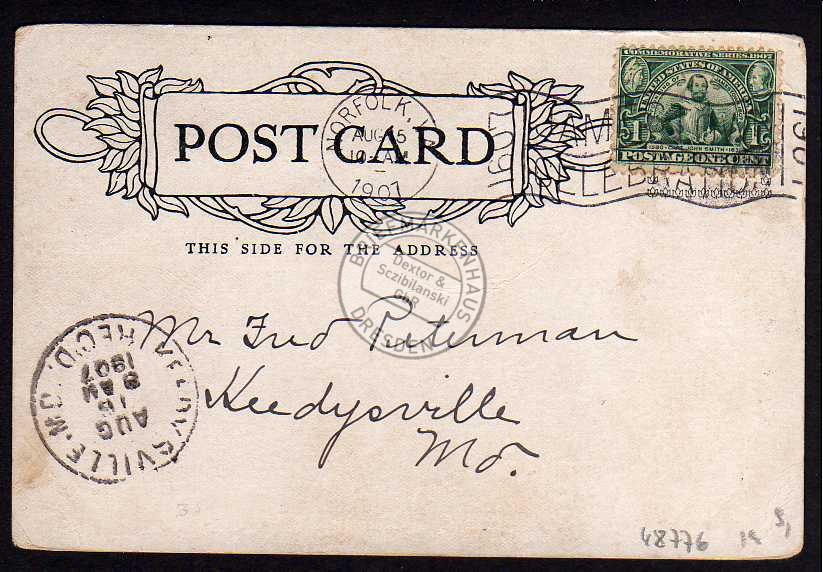 COMMEMORATIVE SERIES 1907
UNITED STATES OF AMERICA
1 1
1580 CAPT. JOHN SMITH 1631
POSTAGE ONE CENT
NORFOLK,
AUG 15
AM
1907
1907
1907
POST CARD
THIS SIDE FOR THE ADDRESS
BRIEFMARKENHAUS
Dextor &
Sczibilanski
GbR
DRESDEN
Mr Fred Peterman
Keedysville
Md.
KEEDYSVILLE, MD.
AUG
16
8 AM
1907
REC'D.
48776